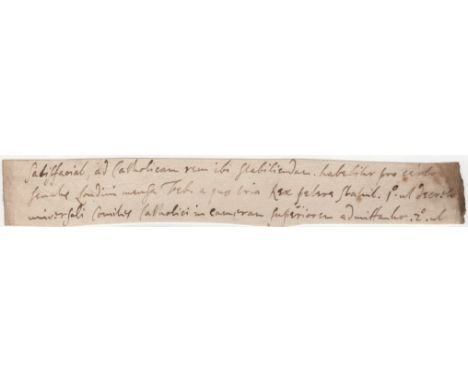 satisfaciat, ad Catholicam rem ibi stabiliendam. habetur pro certo
Londini mense Feb. a quo tria Rex petere statuit. 1º. ut decreto
universali Comites Catholici in cameram superiorem admittantur. 2º. ut